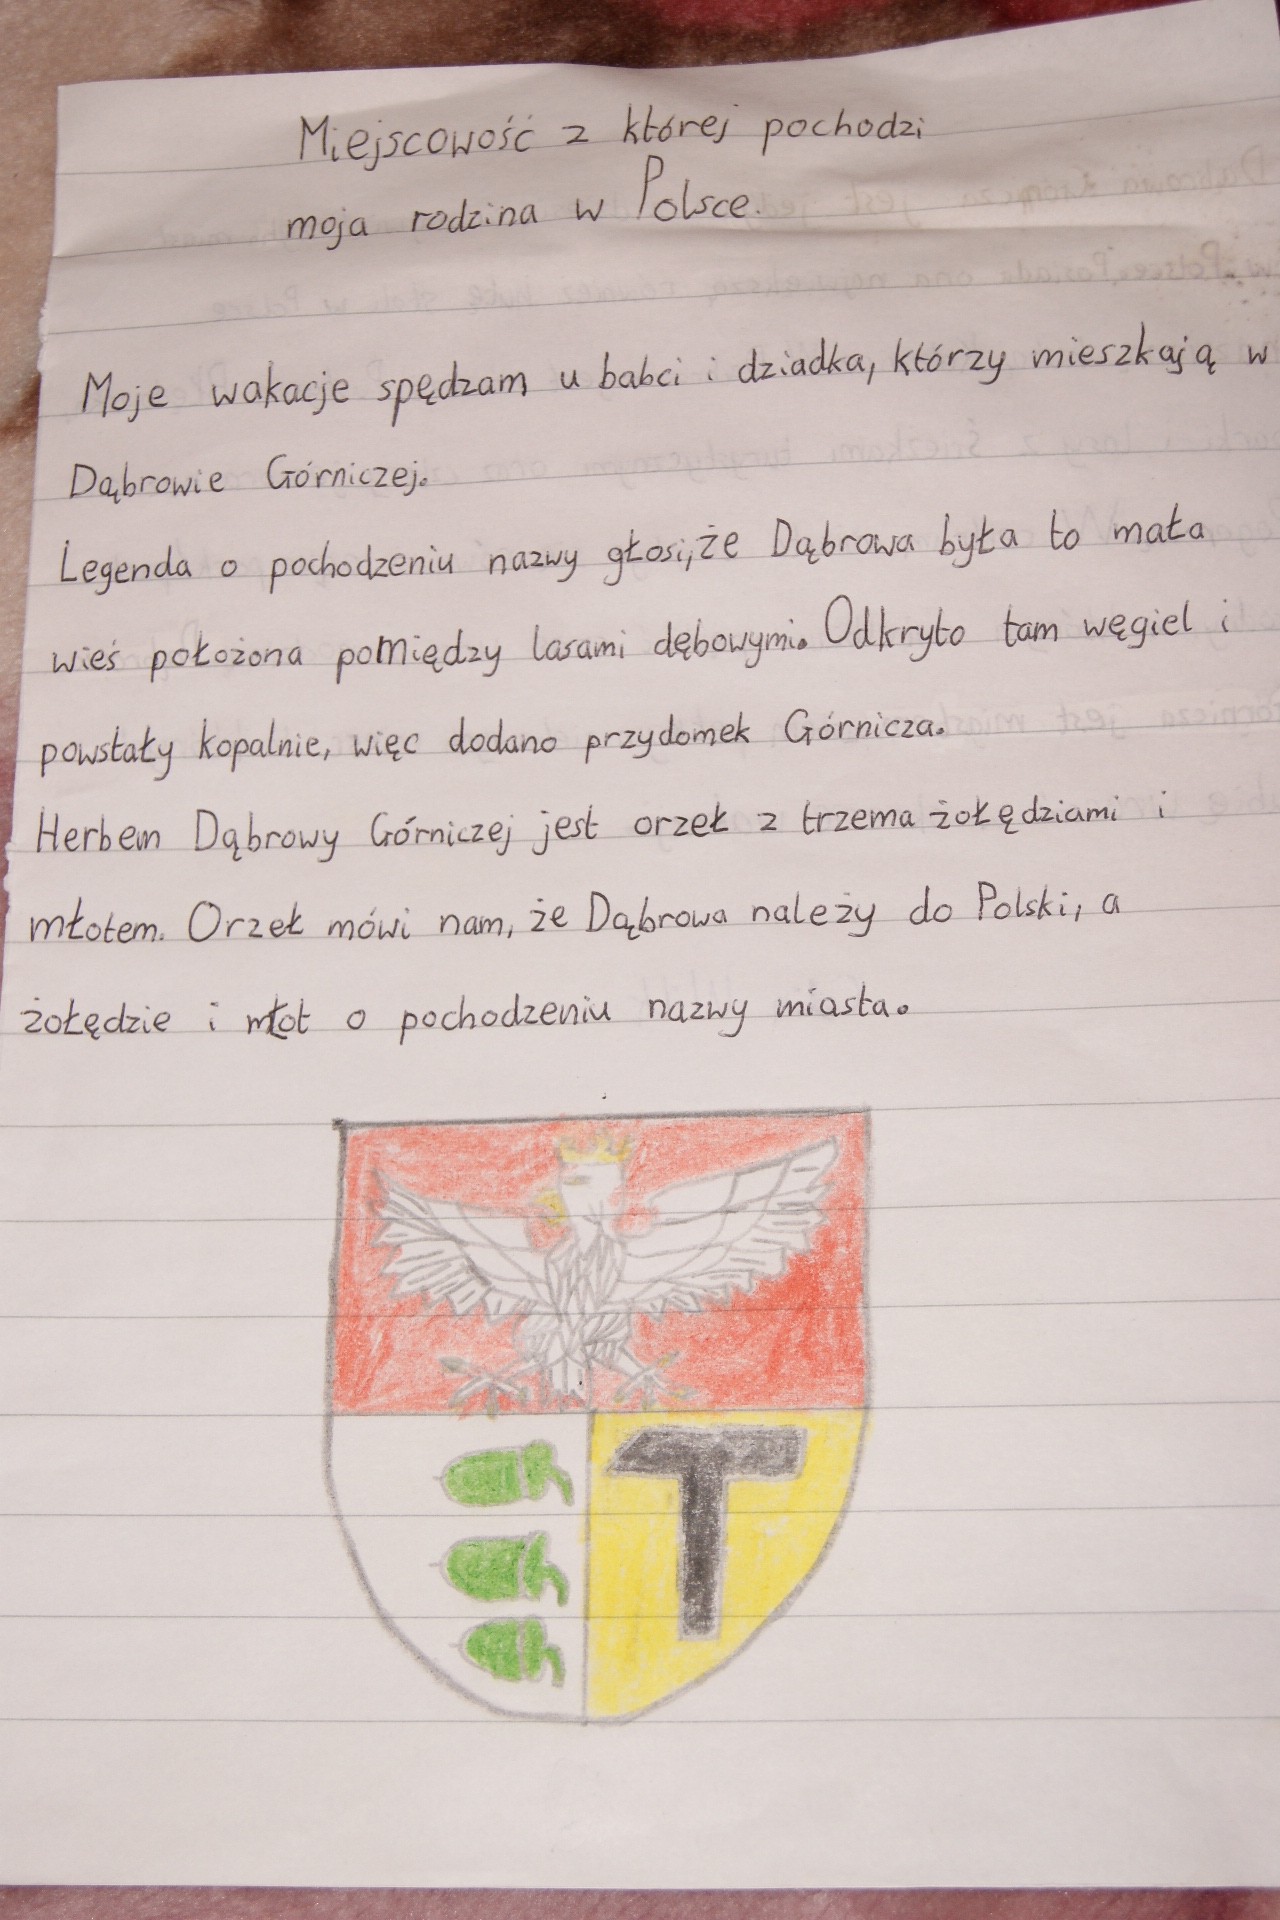 Miejscowość z której pochodzi
moja rodzina w Polsce.
Moje wakacje spędzam u babci i dziadka, którzy mieszkają w
Dąbrowie Górniczej.
Legenda o pochodzeniu nazwy głosi, że Dąbrowa była to mała
wieś położona pomiędzy lasami dębowymi. Odkryto tam węgiel i
powstały kopalnie, więc dodano przydomek Górnicza.
Herbem Dąbrowy Górniczej jest orzeł z trzema żołędziami i
młotem. Orzeł mówi nam, że Dąbrowa należy do Polski, a
żołędzie i młot o pochodzeniu nazwy miasta.